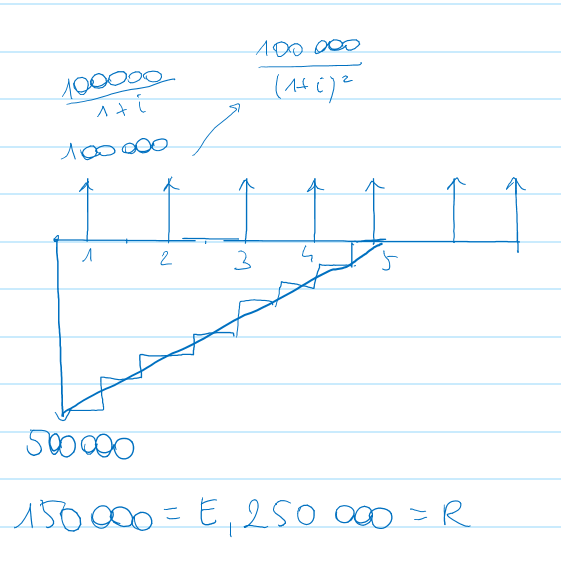 100 000
(1+i)²
100000
1+i
100 000
1 2 3 4 5
500 000
150 000 = E, 250 000 = R